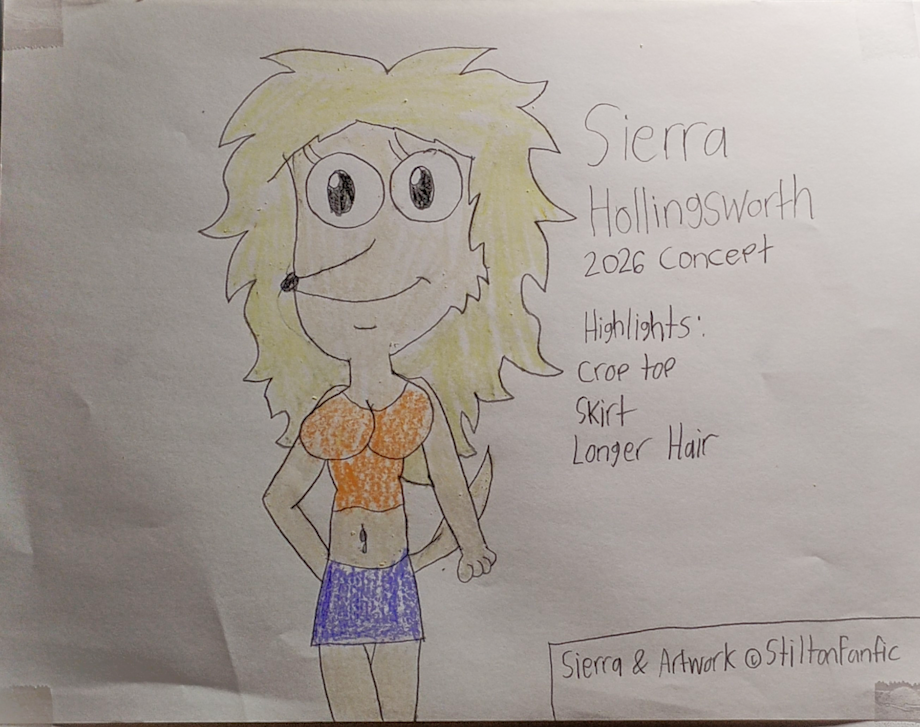 Sierra
Hollingsworth
2026 Concept
Highlights:
Crop top
Skirt
Longer Hair
Sierra & Artwork ©StiltonFanfic